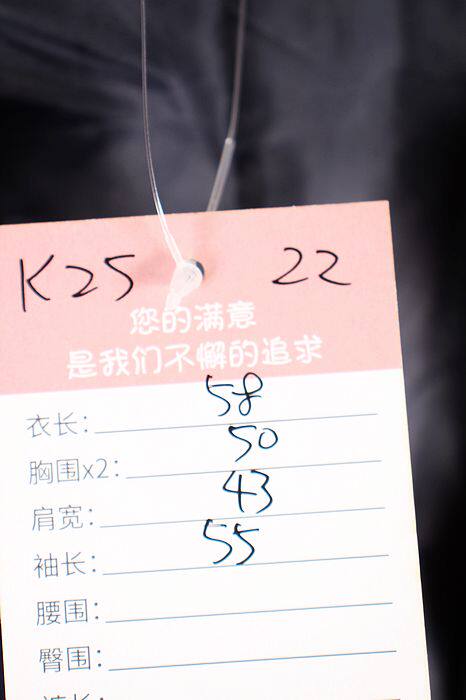 K25 22
您的满意
是我们不懈的追求
衣长: 58
胸围x2: 50
肩宽: 43
袖长: 55
腰围:
臀围: